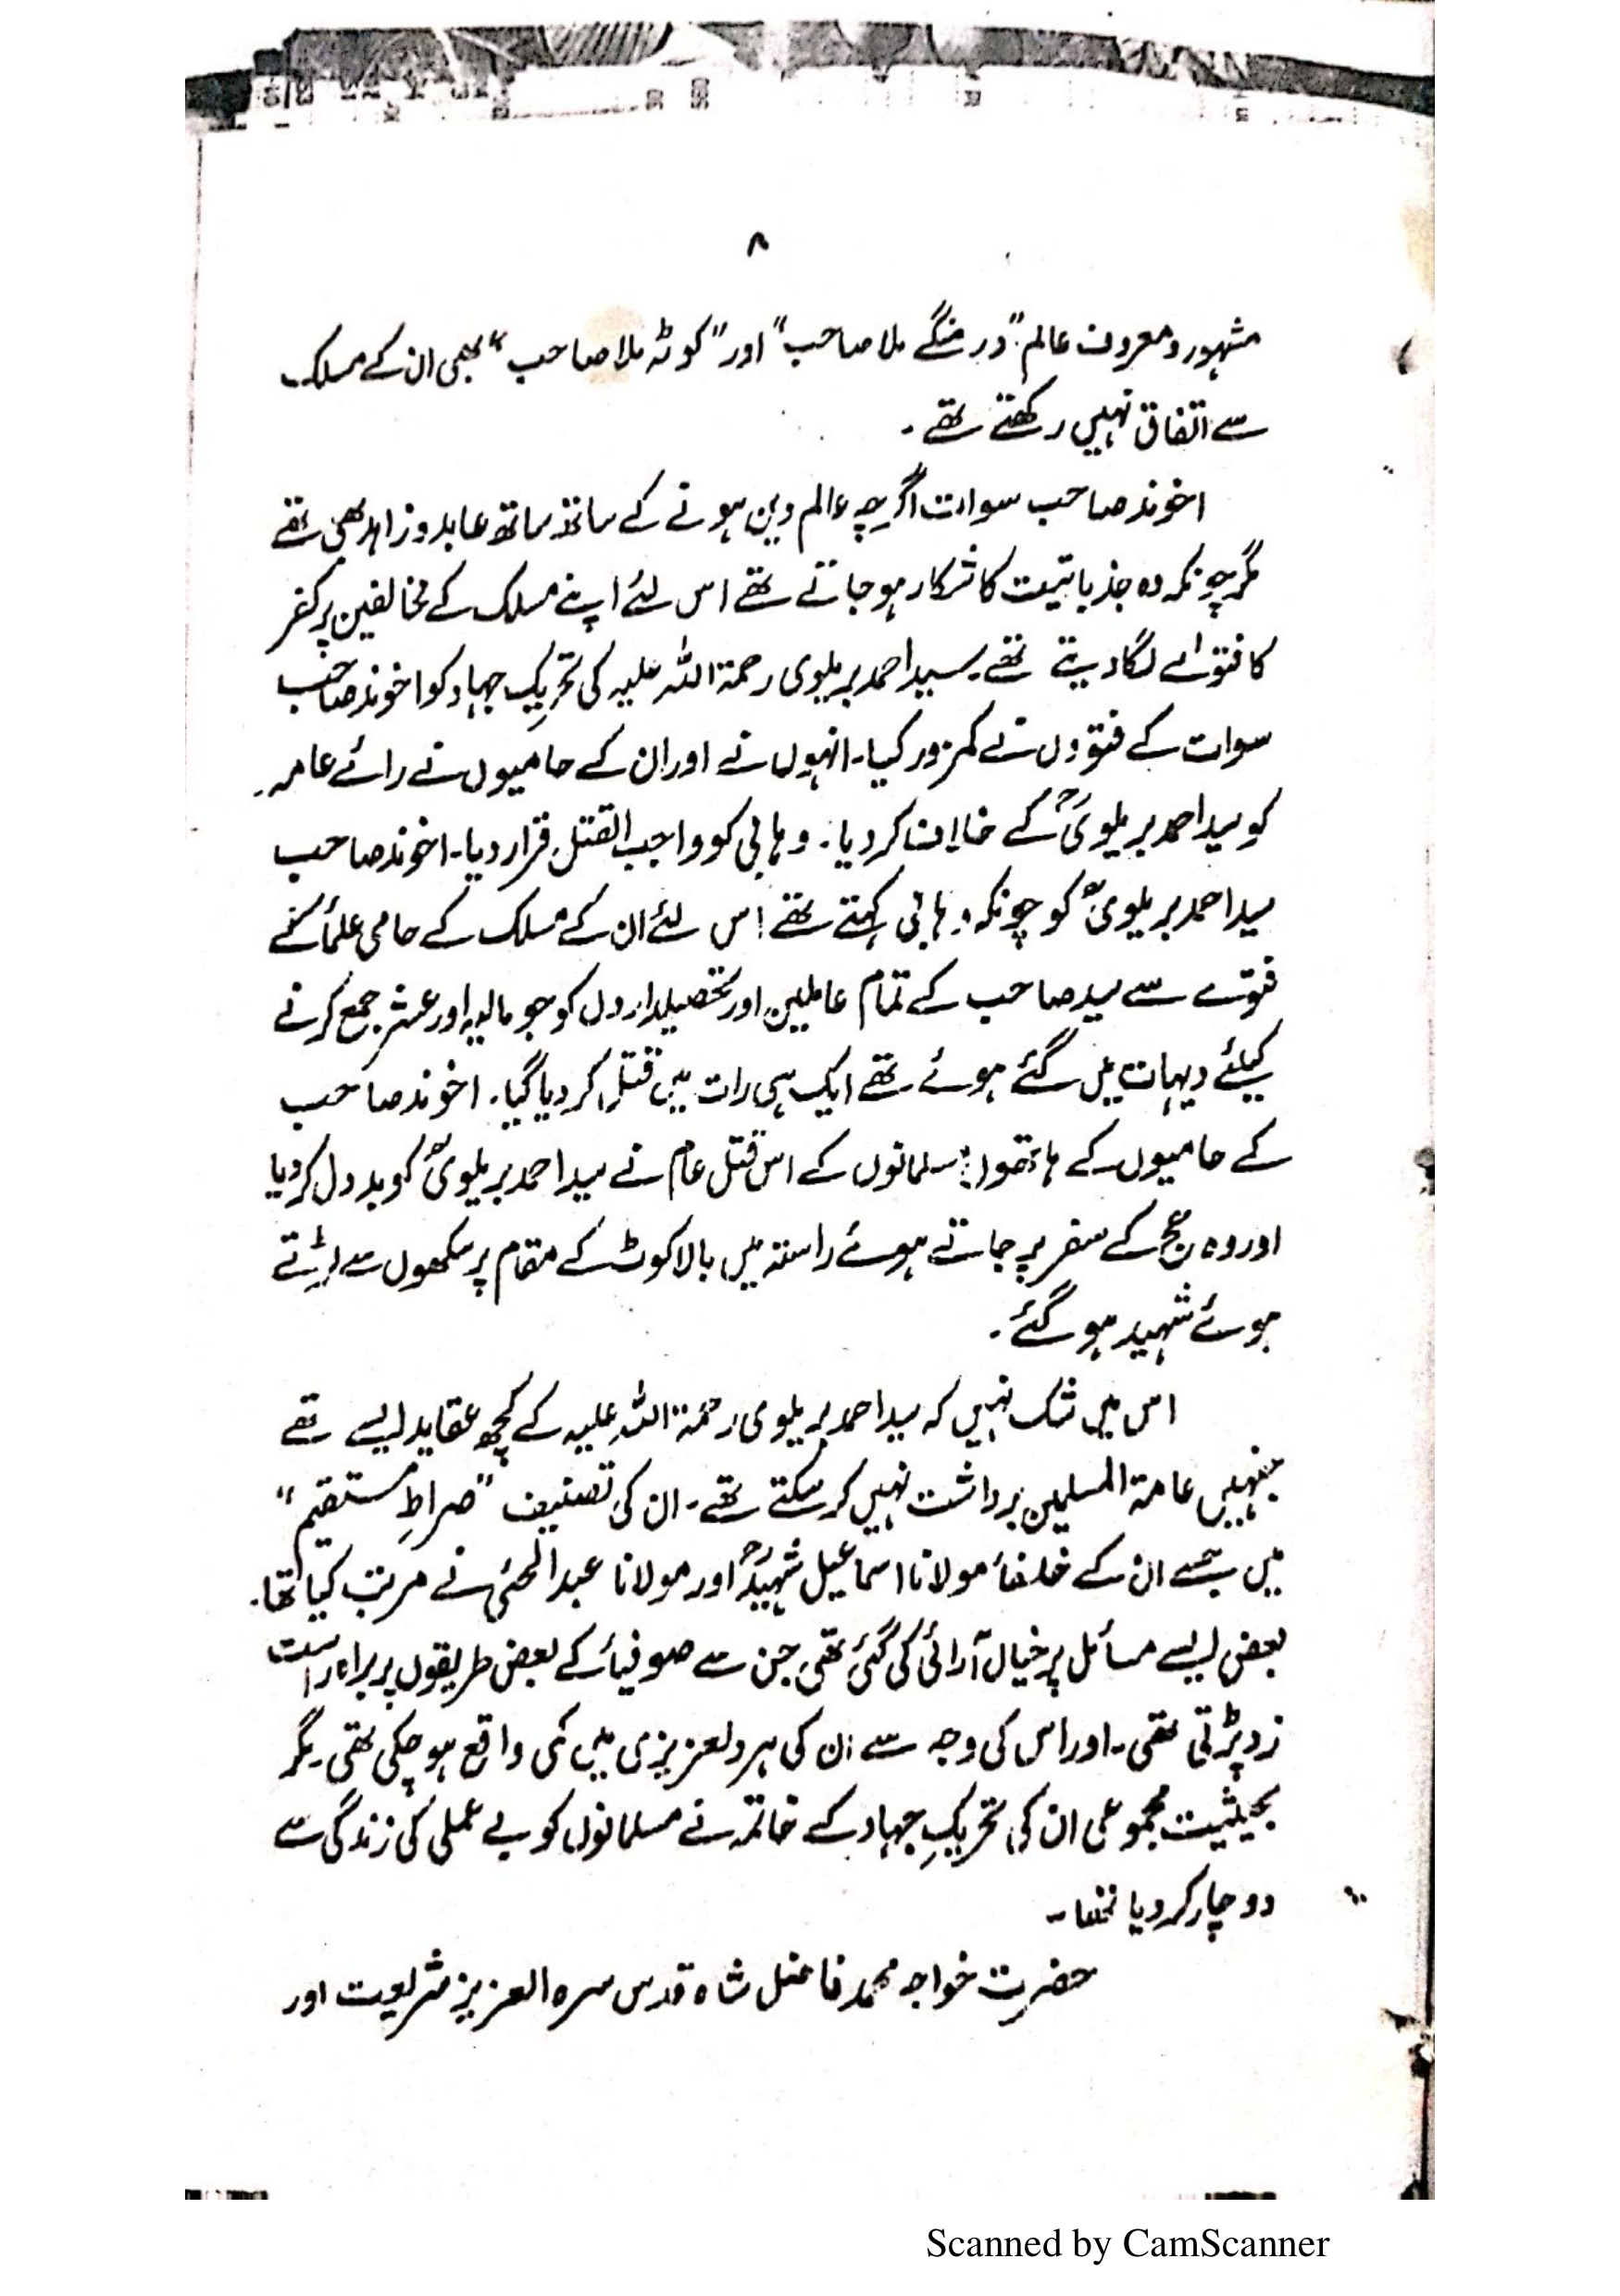 ۸
مشہور و معروف عالم "درمنگے ملا صاحب" اور "کوٹہ ملا صاحب" بھی ان کے مسلک
سے اتفاق نہیں رکھتے تھے۔
اخوند صاحب سوات اگرچہ عالم دین ہونے کے ساتھ ساتھ عابد و زاہد بھی تھے
مگر چونکہ وہ جذباتیت کا شکار ہو جاتے تھے اس لئے اپنے مسلک کے مخالفین پر کفر
کا فتوٰے لگا دیتے تھے۔ سید احمد بریلوی رحمۃ اللہ علیہ کی تحریک جہاد کو اخوند صاحب
سوات کے فتوؤں نے کمزور کیا۔ انہوں نے اور ان کے حامیوں نے رائے عامہ
کو سید احمد بریلویؒ کے خلاف کر دیا۔ وہابی کو واجب القتل قرار دیا۔ اخوند صاحب
سید احمد بریلویؒ کو چونکہ وہابی کہتے تھے اس لئے ان کے مسلک کے حامی علمأ کے
فتوے سے سید صاحب کے تمام عاملین اور تحصیلداروں کو جو مالیہ اور عشر جمع کرنے
کیلئے دیہات میں گئے ہوئے تھے ایک ہی رات میں قتل کر دیا گیا۔ اخوند صاحب
کے حامیوں کے ہاتھوں مسلمانوں کے اس قتل عام نے سید احمد بریلویؒ کو بددل کر دیا
اور وہ حج کے سفر پر جاتے ہوئے راستہ میں بالاکوٹ کے مقام پر سکھوں سے لڑتے
ہوئے شہید ہو گئے۔
اس میں شک نہیں کہ سید احمد بریلوی رحمۃ اللہ علیہ کے کچھ عقاید ایسے تھے
جنہیں عامۃ المسلمین برداشت نہیں کر سکتے تھے۔ ان کی تصنیف "صراطِ مستقیم"
میں جسے ان کے خلفأ مولانا اسماعیل شہیدؒ اور مولانا عبدالحئی نے مرتب کیا تھا۔
بعض ایسے مسائل پر خیال آرائی کی گئی تھی جن سے صوفیأ کے بعض طریقوں پر براہ راست
زد پڑتی تھی۔ اور اس کی وجہ سے ان کی ہر دلعزیزی میں کمی واقع ہو چکی تھی۔ مگر
بحیثیت مجموعی ان کی تحریکِ جہاد کے خاتمہ نے مسلمانوں کو بے عملی کی زندگی سے
دوچار کر دیا تھا۔
حضرت خواجہ محمد فاضل شاہ قدس سرہ العزیز شریعت اور
Scanned by CamScanner